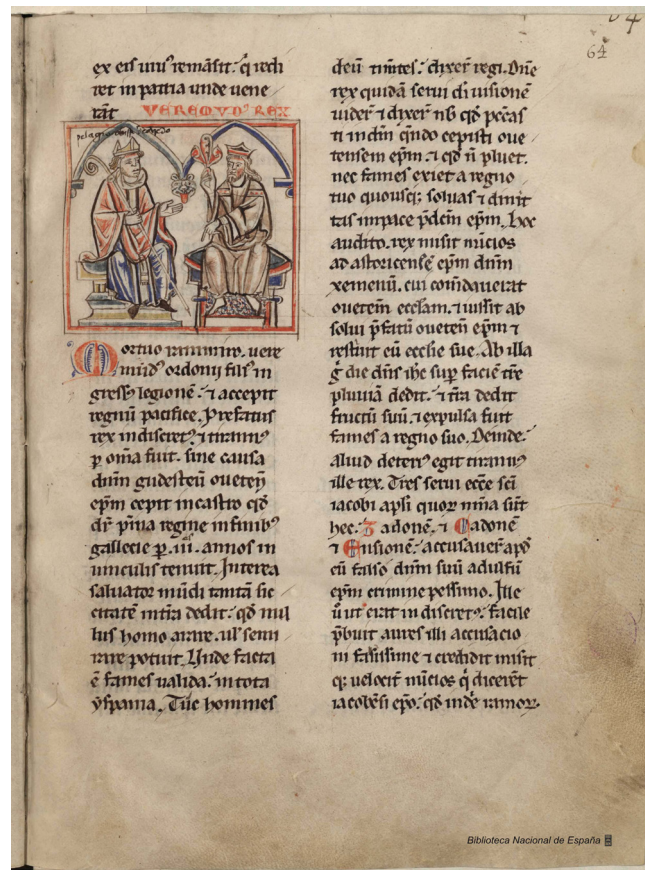 64
64
ex eis unꝰ remãsit. q̃ redi
ret in patria unde vene
rãt VEREMVDꝰ REX
pelagius
Mortuo ranimiro. vere
mudꝰ ordonii filiꝰ in
gressꝰ legionẽ. ⁊ accepit
regnũ pacifice. Prefatus
rex indiscretꝰ ⁊ tirannꝰ
ꝑ om̃a fuit. sine causa
dñm gudesteũ oueteñ
ep̃m cepit in castro qď
dr̃ p̃ma regine in finibꝰ
gallecie ꝑ .iii. annos in
vinculis tenuit. Interea
saluator mũdi tantã sic
citatẽ in tr̃a dedit. qď nul
lus homo arare. ul̃ semi
nare potuit. Unde facta
ẽ fames valida. in tota
yspania. Tũc homines
deũ timẽtes. dixer̃ regi. Dñe
rex quidã serui di uisionẽ
uider̃ ⁊ dixer̃ nb̃ qď pc̃cas
ti in dm̃ qñdo cepisti oue
tensem ep̃m. ⁊ qď ñ pluet.
nec fames exiet a regno
tuo quousq; soluas ⁊ dimit
tas in pace p̃dcm̃ ep̃m. Hoc
audito. rex misit nũcios
ad astoricensẽ ep̃m dñm
xemenũ. cui cõmdauerat
ouetem̃ eccl̃am. ⁊ iussit ab
solui p̃fatũ oueteñ ep̃m ⁊
restituit eũ eccl̃ie sue. Ab illa
g̃ die dñs ihc̃ suꝑ faciẽ tr̃e
pluuiã dedit. ⁊ tr̃a dedit
fructũ suũ. ⁊ expulsa fuit
fames a regno suo. Deinde.
aliud deteriꝰ egit tirannꝰ
ille rex. Tres serui ecc̃e sc̃i
iacobi apl̃i quoꝝ nõina sũt
hec. Zadonẽ. ⁊ Cadonẽ
⁊ Ensionẽ. accusauer̃ apď
eũ falso dñm suũ adulfũ
ep̃m crimine pessimo. Ille
ũ ut erat indiscretꝰ. facile
p̃buit aures illi accusacio
ni falsissime ⁊ credidit misit
q; uelocit̃ nũcios q̃ dicerẽt
iacobẽsi ep̃o. qď inde
Biblioteca Nacional de España